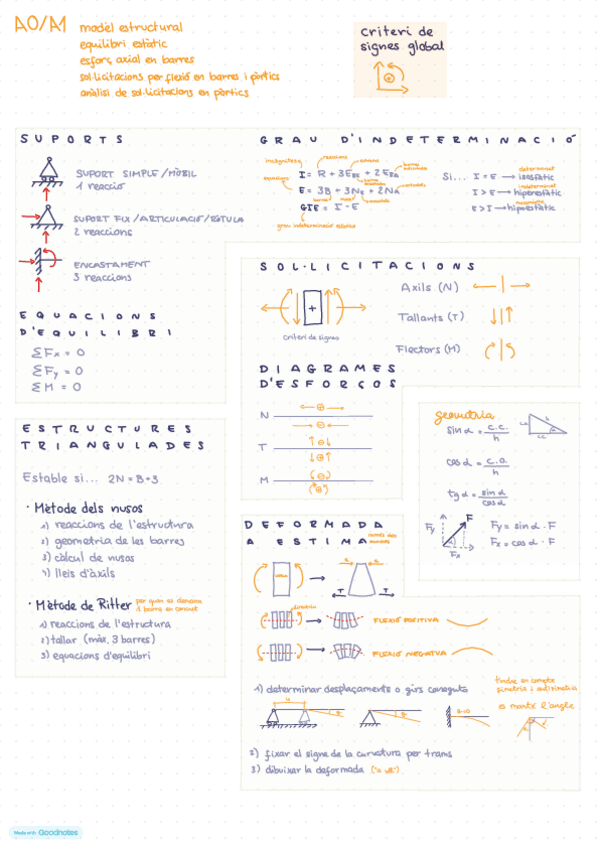 A0/A1
model estructural
equilibri estàtic
esforç axial en barres
sol·licitacions per flexió en barres i pòrtics
anàlisi de sol·licitacions en pòrtics
criteri de
signes global
SUPORTS
SUPORT SIMPLE/MÒBIL
1 reacció
SUPORT FIX/ARTICULACIÓ/RÒTULA
2 reaccions
ENCASTAMENT
3 reaccions
EQUACIONS
D'EQUILIBRI
ΣFx = 0
ΣFy = 0
ΣM = 0
GRAU D'INDETERMINACIÓ
incògnites
reaccions
I = R + 3EBE + 2EBA
equacions
E = 3B + 3NE + 2NA
GIE = I - E
grau indeterminació externa
Si... I = E → isostàtic
I > E → hiperestàtic
E > I → hipostàtic
SOL·LICITACIONS
+
criteri de signes
Axils (N)
Tallants (T)
Flectors (M)
DIAGRAMES
D'ESFORÇOS
N
T
M
geometria
sin α = c.c. / h
cos α = c.a / h
tg α = sin α / cos α
Fy
F
Fx
Fy = sin α · F
Fx = cos α · F
ESTRUCTURES
TRIANGULADES
Estable si... 2N = B+3
· Mètode dels nusos
1) reaccions de l'estructura
2) geometria de les barres
3) càlcul de nusos
4) lleis d'àxils
· Mètode de Ritter
1) reaccions de l'estructura
2) tallar (màx. 3 barres)
3) equacions d'equilibri
DEFORMADA
A ESTIMA
T
T
FLEXIÓ POSITIVA
FLEXIÓ NEGATIVA
1) determinar desplaçaments o girs coneguts
tindre en compte
simetria i antisimetria
es manté l'angle
2) fixar el signe de la curvatura per trams
3) dibuixar la deformada
Made with Goodnotes